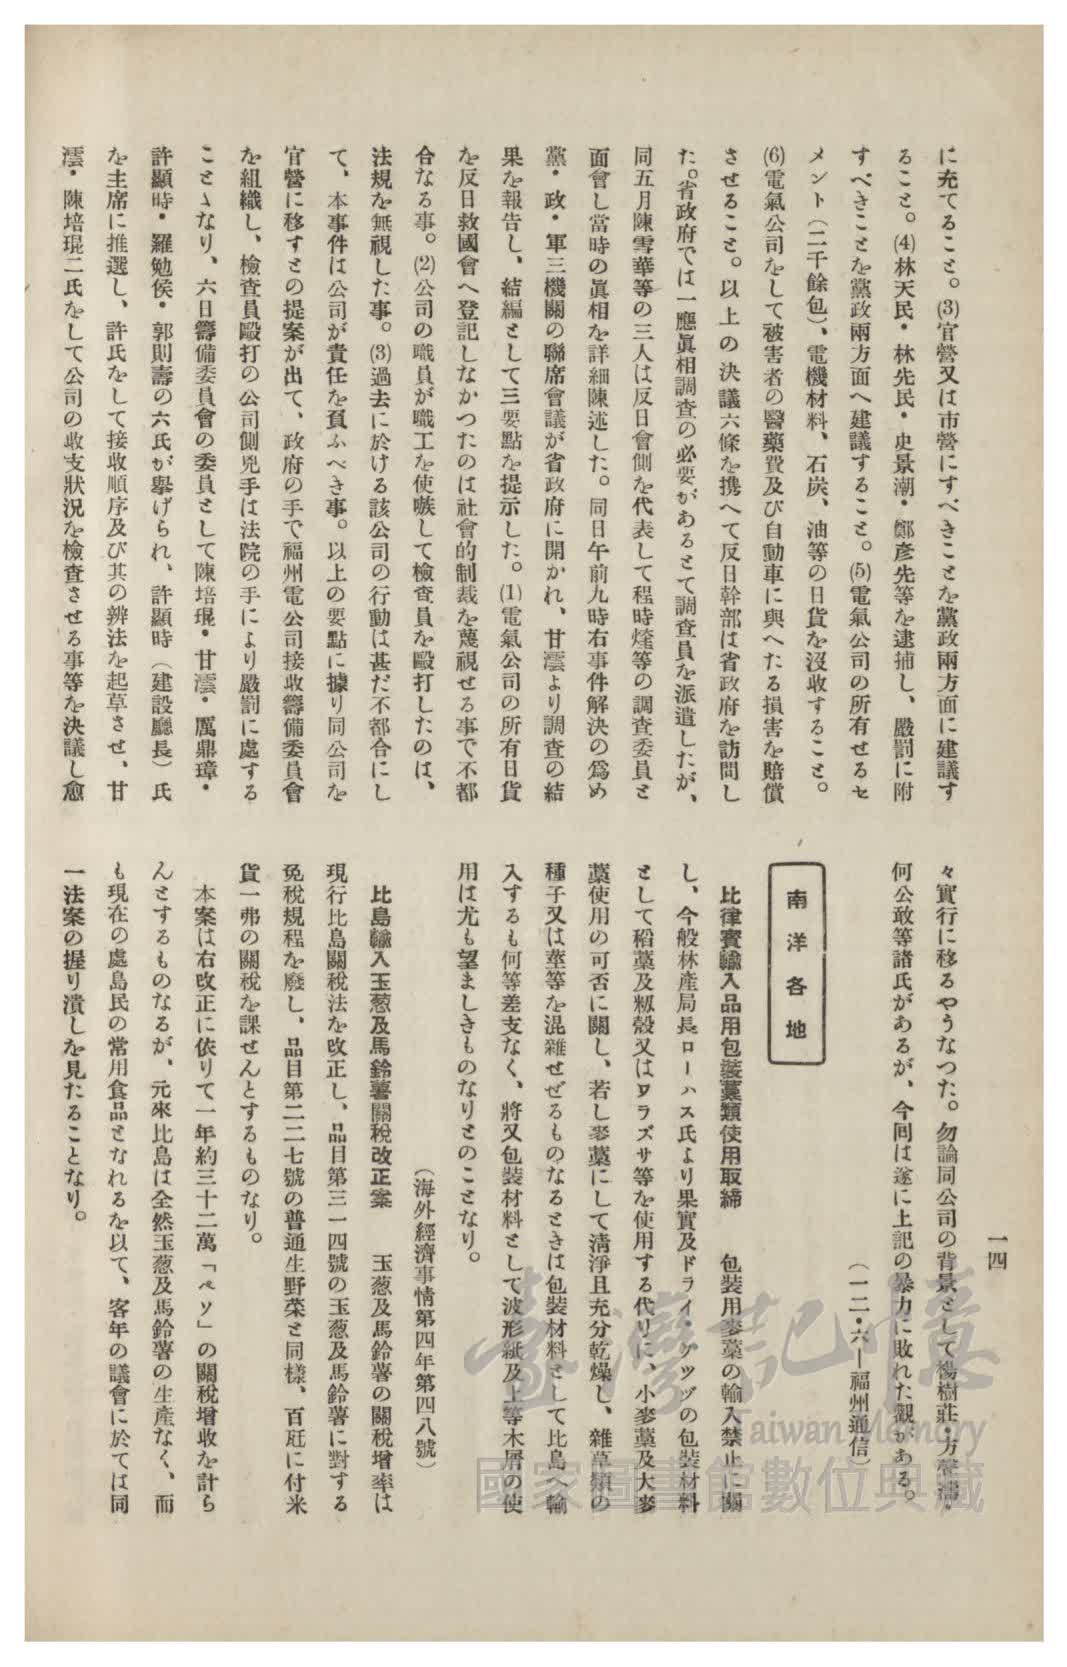 一四
に充てること。(3)官營又は市營にすべきことを黨政兩方面に建議す
ること。(4)林天民・林先民・史景潮・鄭彥先等を逮捕し、嚴罰に附
すべきことを黨政兩方面へ建議すること。(5)電氣公司の所有せるセ
メント(二千餘包)、電機材料、石炭、油等の日貨を沒收すること。
(6)電氣公司をして被害者の醫藥費及び自動車に與へたる損害を賠償
させること。以上の決議六條を携へて反日幹部は省政府を訪問し
た。省政府では一應眞相調查の必要があるとて調查員を派遣したが、
同五月陳雪華等の三人は反日會側を代表して程時煃等の調查委員と
面會し當時の眞相を詳細陳述した。同日午前九時右事件解決の爲め
黨・政・軍三機關の聯席會議が省政府に開かれ、甘澐より調查の結
果を報告し、結編として三要點を提示した。(1)電氣公司の所有日貨
を反日救國會へ登記しなかつたのは社會的制裁を蔑視せる事で不都
合なる事。(2)公司の職員が職工を使嗾して檢查員を毆打したのは、
法規を無視した事。(3)過去に於ける該公司の行動は甚だ不都合にし
て、本事件は公司が責任を負ふべき事。以上の要點に據り同公司を
官營に移すとの提案が出て、政府の手で福州電公司接收籌備委員會
を組織し、檢查員毆打の公司側兇手は法院の手により嚴罰に處する
ことゝなり、六日籌備委員會の委員として陳培琨・甘澐・厲鼎璋・
許顯時・羅勉侯・郭則壽の六氏が擧げられ、許顯時(建設廳長)氏
を主席に推選し、許氏をして接收順序及び其の辨法を起草させ、甘
澐・陳培琨二氏をして公司の收支狀況を檢查させる事等を決議し愈
々實行に移るやうなつた。勿論同公司の背景として楊樹莊・方聲濤・
何公敢等諸氏があるが、今囘は遂に上記の暴力に敗れた觀がある。
(一二・六—福州通信)
南洋各地
比律賓輸入品用包裝藁類使用取締 包裝用麥藁の輸入禁止に關
し、今般林產局長ローハス氏より果實及ドライ・グッヅの包裝材料
として稻藁及籾殼又はワラズサ等を使用する代りに、小麥藁及大麥
藁使用の可否に關し、若し麥藁にして淸淨且充分乾燥し、雜草類の
種子又は莖等を混雜せぜるものなるときは包裝材料として比島へ輸
入するも何等差支なく、將又包裝材料として波形紙及上等木屑の使
用は尤も望ましきものなりとのことなり。
(海外經濟事情第四年第四八號)
比島輸入玉葱及馬鈴薯關稅改正案 玉葱及馬鈴薯の關稅增率は
現行比島關稅法を改正し、品目第三一四號の玉葱及馬鈴薯に對する
免稅規程を廢し、品目第二二七號の普通生野菜と同樣、百瓩に付米
貨一弗の關稅を課せんとするものなり。
本案は右改正に依りて一年約三十二萬「ペソ」の關稅增收を計ら
んとするものなるが、元來比島は全然玉葱及馬鈴薯の生產なく、而
も現在の處島民の常用食品となれるを以て、客年の議會に於ては同
一法案の握り潰しを見たることなり。
臺灣記憶
Taiwan Memory
國家圖書館數位典藏